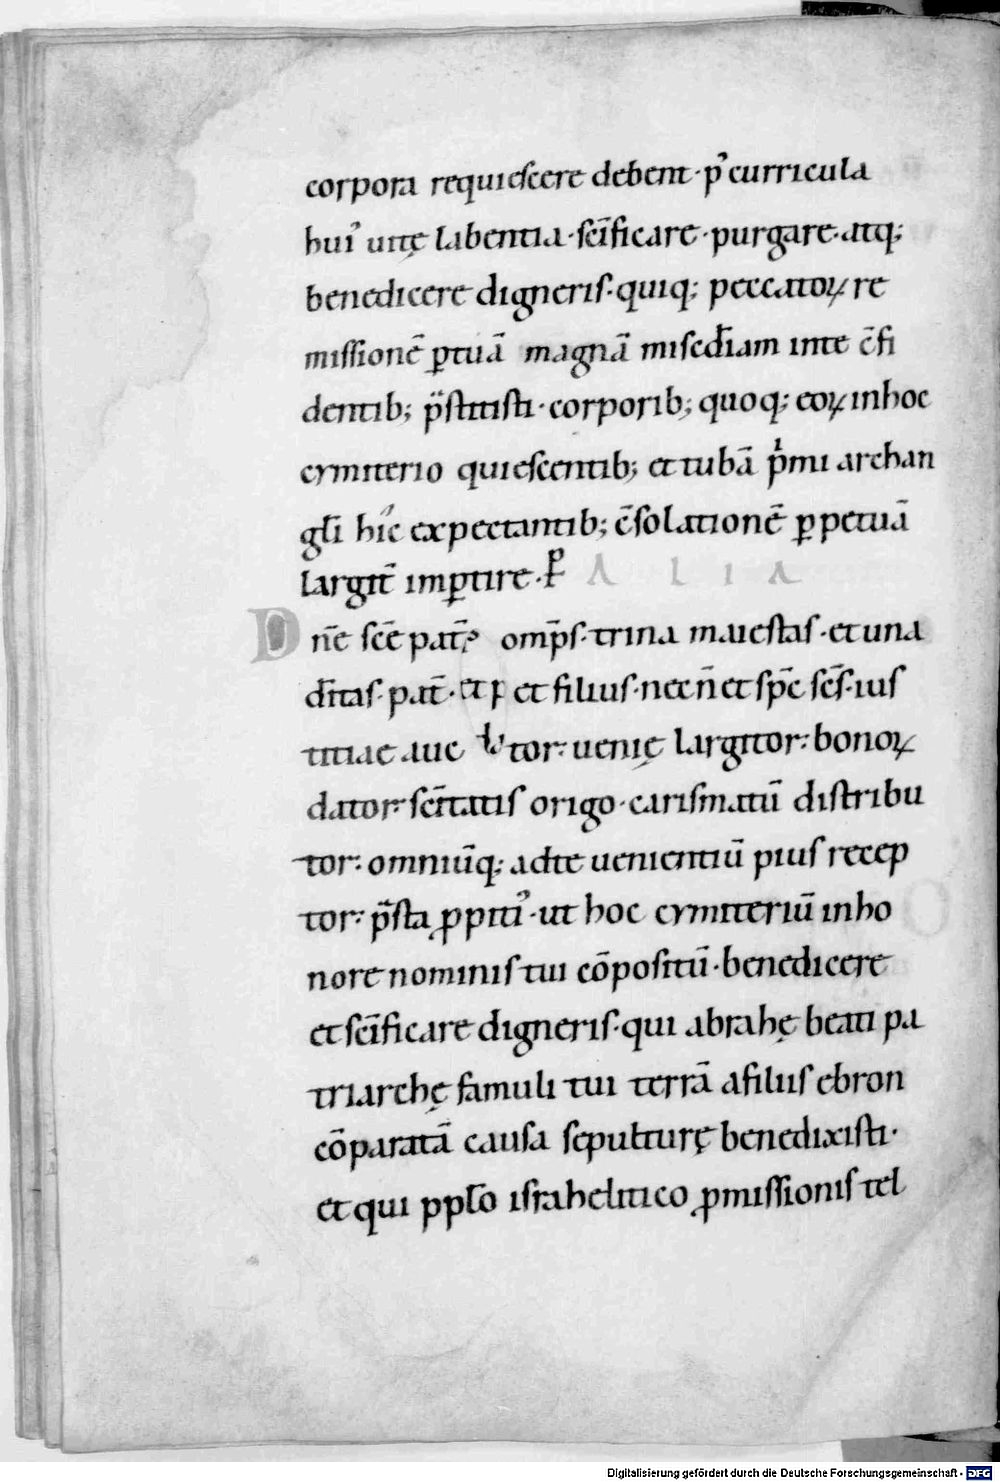 corpora requiescere debent · pꝰ curricula
huiꝰ uitę labentia · sc̄ificare · purgare · atq;
benedicere digneris · quiq; peccatoꝝ re
missionē ꝑ tuā magnā misedīam inte c̄fi
dentib; p̄stitisti · corporib; quoq; eoꝝ inhoc
cymiterio quiescentib; et tubā pͥmi archan
gl̄i hic expectantib; c̄solationē ꝑpetuā
largit̄ imꝑtire · ꝑ ALIA
Dn̄e sc̄e pat̄ omp̄s · trina maiestas · et una
dītas · pat̄ · et filius · necn̄ et sp̄c sc̄s · ius
titiae auctor : uenię largitor : bonoꝝ
dator · sc̄itatis origo · carismatū distribu
tor : omniūq; adte uenientiū pius recep
tor : p̄sta ꝓpitiꝰ · ut hoc cymiteriū inho
nore nominis tui cō positū · benedicere
et sc̄ificare digneris · qui abrahę beati pa
triarchę famuli tui terrā afiliis ebron
cōparatā causa sepulturę benedixisti ·
et qui ppl̄o israhelitico ꝓmissionis tel
Digitalisierung gefördert durch die Deutsche Forschungsgemeinschaft - DFG